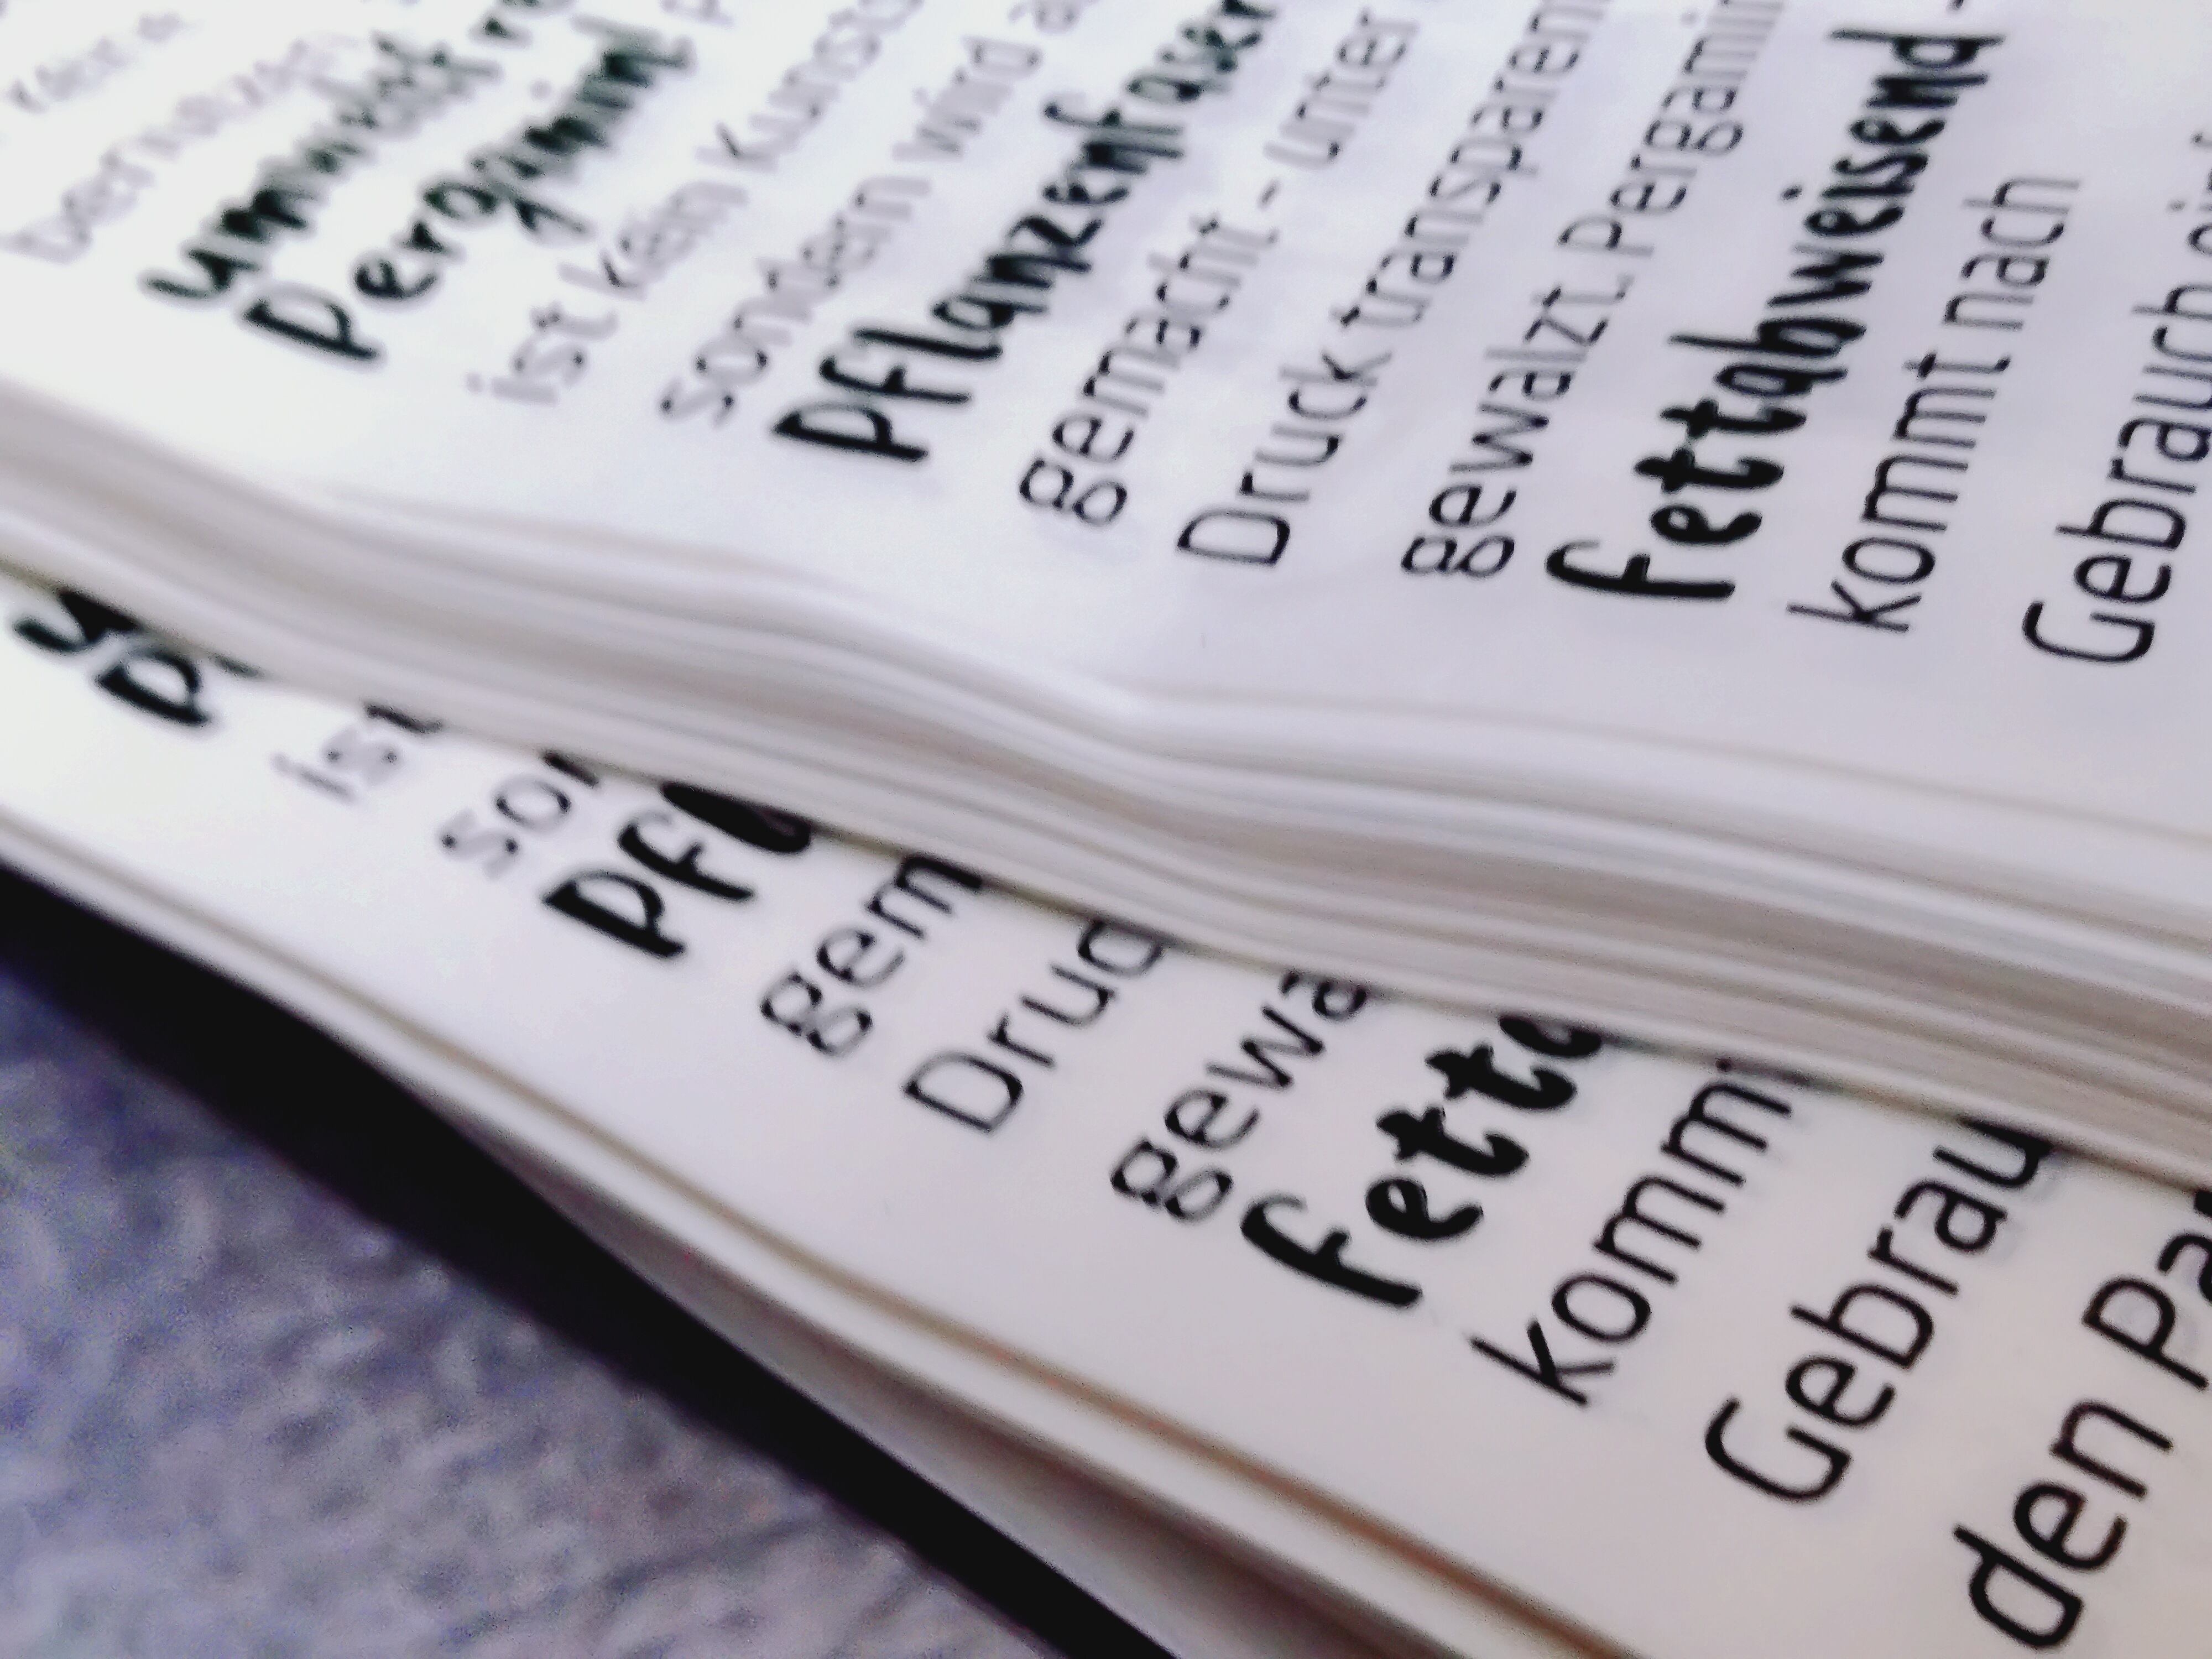 Pergamin
ist kein Kunsto
sondern wird a
Pflanzenfaser
gemacht - unter
Druck transparen
gewalzt. Pergamin
Fettabweisend -
kommt nach
Gebrauch ei
ist
son
Pfl
gem
Druc
gewa
Fetta
komm
Gebrau
den Pa